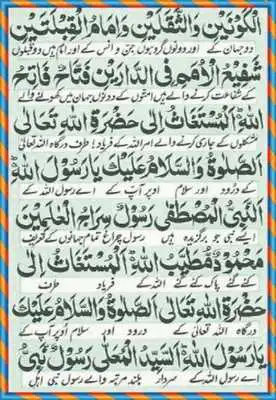 الْكَوْنَيْنِ وَالثَّقَلَيْنِ وَاِمَامِ الْقِبْلَتَيْنِ
دو جہان کے اور دونوں گروہوں جن و انس کے اور امام ہیں دو قبلوں
شَفِيْعِ الْاُمَمِ فِى الدَّارَيْنِ فَتَّاحٌ فَاتِحٌ
کے شفاعت کرنے والے ہیں امتوں کے دونوں جہان میں کھولنے والے
اللهِ الْمُسْتَغَاثُ اِلٰى حَضْرَةِ اللهِ تَعَالٰى
مشکلوں کے جاری کرنے والے امر اللہ کے فریاد! طرف درگاہ اللہ تعالیٰ
الصَّلٰوةُ وَالسَّلَامُ عَلَيْكَ يَارَسُوْلَ اللهِ
کے درود اور سلام اوپر آپ کے اے رسول اللہ کے
النَّبِىُّ الْمُصْطَفٰى رَسُوْلٌ سِرَاجُ الْعٰلَمِيْنَ
ایسے نبی جو برگزیدہ ہیں رسول چراغ تمام جہانوں کے تعریف
مَحْمُوْدٌ مُطَيَّبُ اللهِ الْمُسْتَغَاثُ اِلٰى
کئے گئے پاک کئے گئے اللہ کے فریاد طرف
حَضْرَةِ اللهِ تَعَالٰى الصَّلٰوةُ وَالسَّلَامُ عَلَيْكَ
درگاہ اللہ تعالیٰ کے درود اور سلام اوپر آپ کے
يَارَسُوْلَ اللهِ السَّيِّدُ الْمُعَلّٰى رَسُوْلٌ نَبِىُّ
اے رسول اللہ کے سردار بلند مرتبہ والے رسول نبی اہل